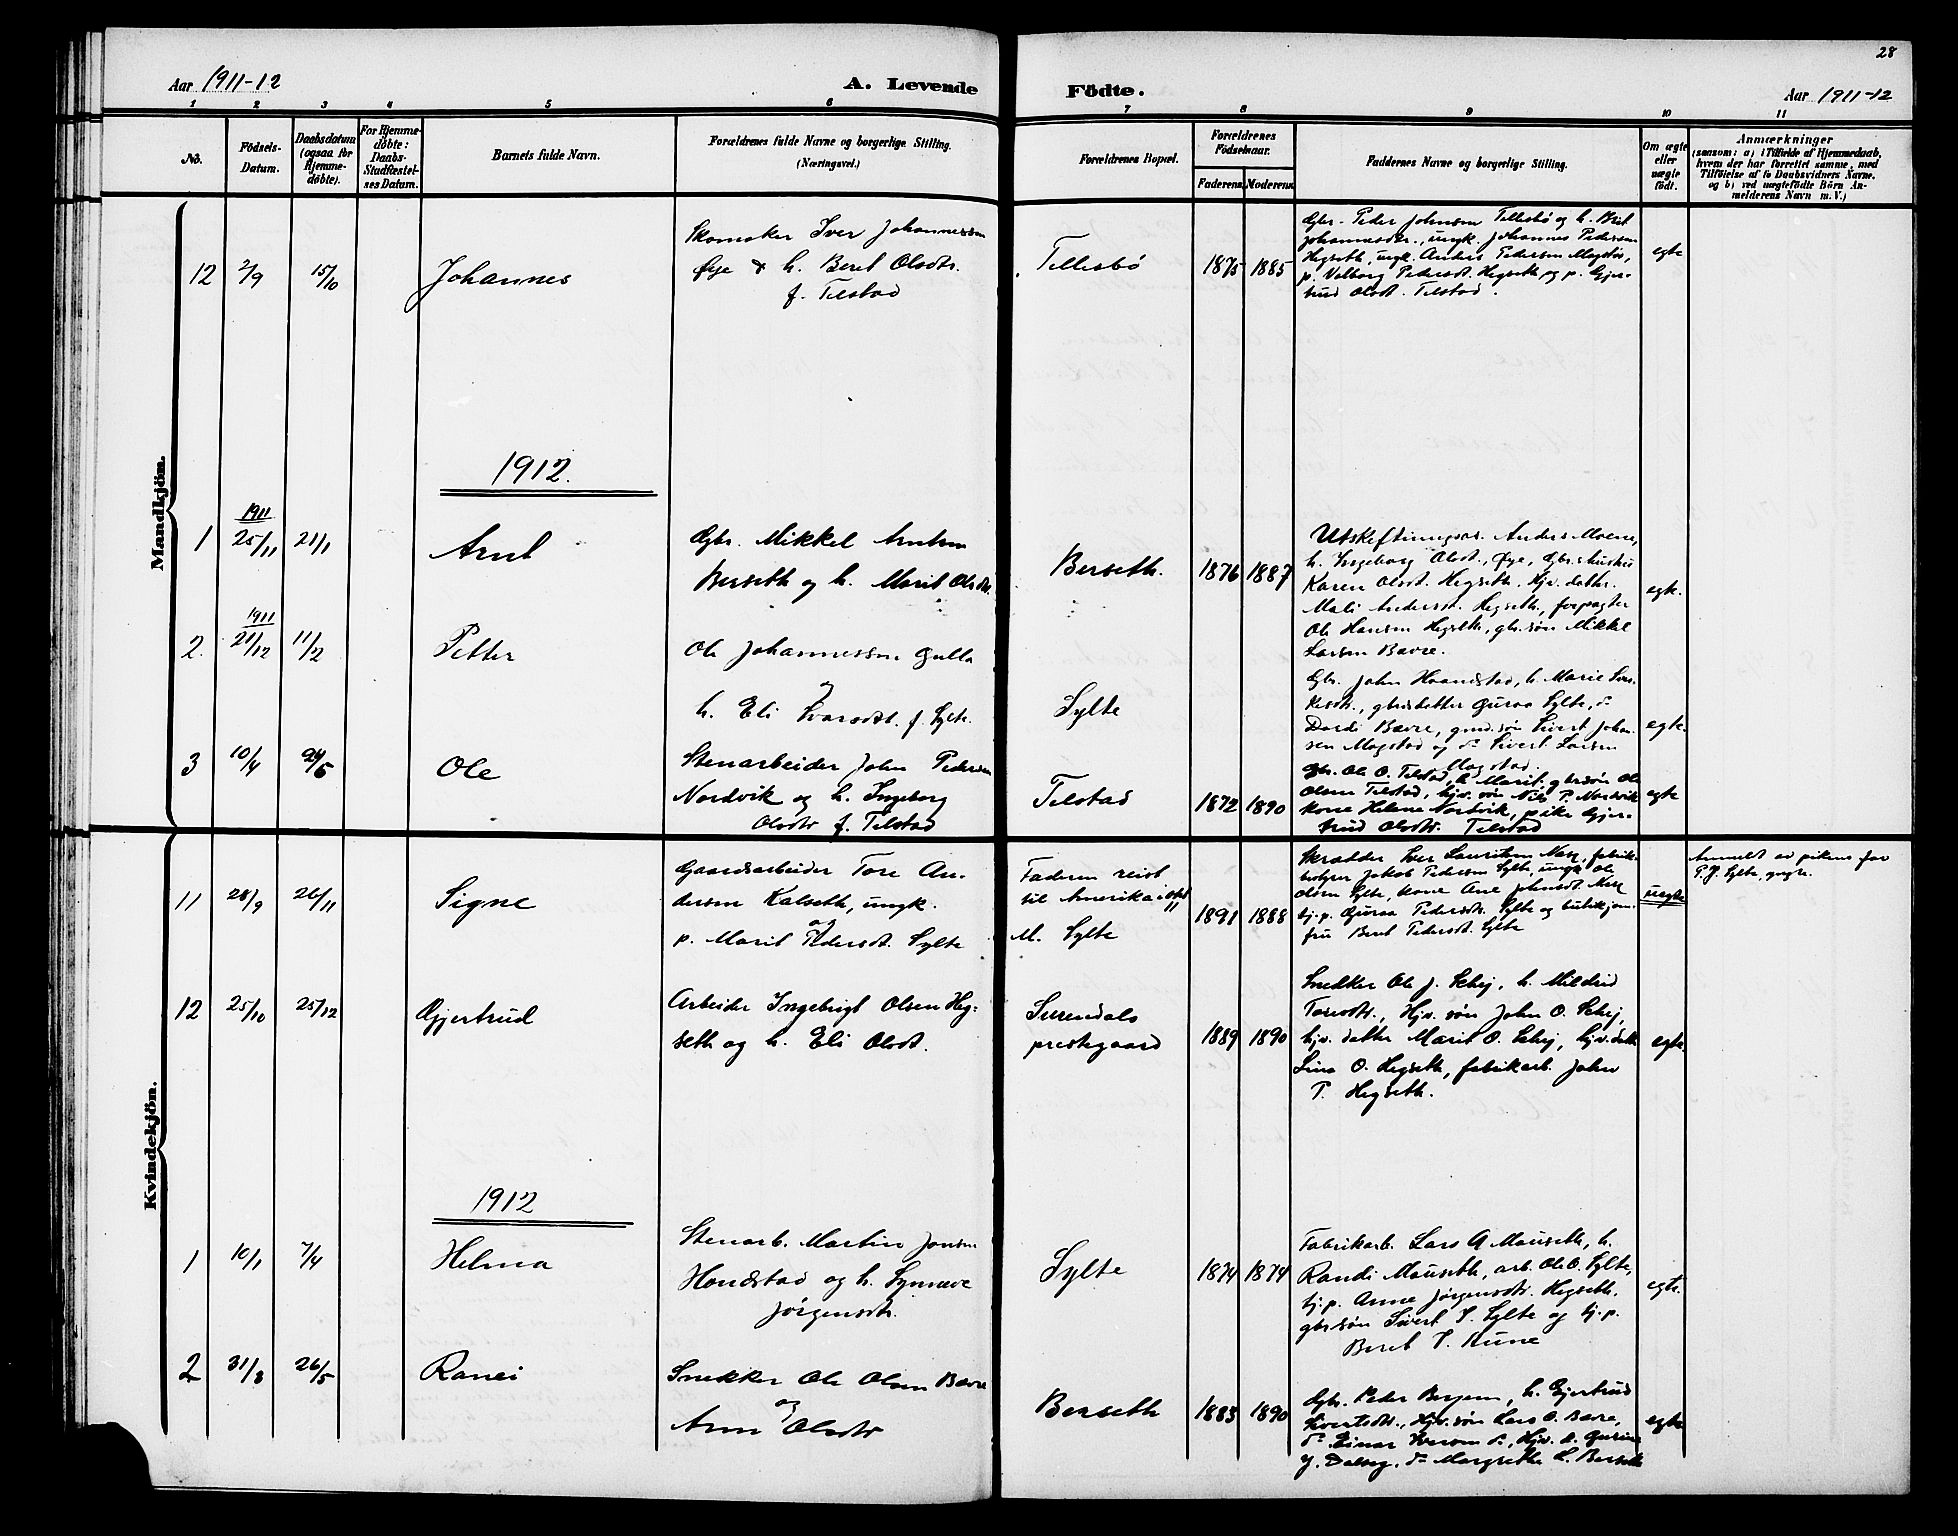 28
Aar 1911-12
A. Levende
Födte.
Aar 1911-12
1 2 3 4 5 6 7 8 9 10 11
No.
Födsels-Datum.
Daabsdatum (ogsaa for Hjemmedöbte).
For Hjemmedöbte: Daabs-Stadfæstelses Datum.
Barnets fulde Navn.
Forældrenes fulde Navne og borgerlige Stilling. (Næringsvei.)
Forældrenes Bopæl.
Forældrenes Födselsaar.
Faderens. Moderens.
Faddernes Navne og borgerlige Stilling.
Om ægte eller uægte födt.
Anmærkninger
(saasom: a) i Tilfælde af Hjemmedaab, hvem der har forrettet samme, med Tilföielse af to Daabsvidners Navne. og b) ved uægtefödte Börn Anmelderens Navn m. V.)
Mandkjön.
12 2/9 15/10 Johannes
Skomaker Iver Johannessen
Øye & h. Beret Olsdtr.
f. Telstad
Tellesbø 1875 1885
Gbr. Peder Johnsen Tellesbø og h. Brit
Johannesdtr., ungk. Johannes Pedersen
Hegseth, ungk. Anders Pedersen Mogstad,
p. Valborg Pedersdt. Hegseth og p. Gjer-
trud Olsdt. Telstad.
egte
1912.
1 1911 25/11 21/1 Arnt
Gbr. Mikkel Arntsen
Berseth og h. Marit Olsdtr.
Berseth. 1876 1887
Utskiftningsas. Anders Moene,
h. Ingeborg Olsdt. Øye, Gbr.s hustru
Karen Olsdt. Hegseth, Hjv. datter
Mali Andersdt. Hegseth, forpagter
Ole Hansen Hegseth, gbr.søn Mikkel
Larsen Bævre.
egte.
2. 1911 21/12 11/2 Petter
Ole Johannessen Gulla
og
h. Eli Ivarsdt. f. Sylte.
Sylte
Gbr. John Haandstad, h. Marie
gbrsdatter Guraa Sylte, do
Dordi Bævre, gmd.søn Sivert Johan-
sen Mogstad og do Sivert Larsen
Mogstad.
egte.
3 10/4 Ole
Stenarbeider John Pedersen
Nordvik og h. Ingeborg
Olsdtr f. Telstad
Telstad 1872 1890
Gbr. Ole O. Telstad, h. Marit, gbrsøn Ole
Olsen Telstad, hjv. søn Nils P. Nordvik
kone Helene Nordvik, pike Gjer-
trud Olsdtr. Telstad
egte
Kvindekjön.
11 28/9 26/11 Signe
Gaardsarbeider Tore An-
dersen Kalseth, ungk.
og
p. Marit Pedersdt. Sylte
Faderen reist
til Amerika i
M. Sylte
1891 1888
Skrædder Iver Lauritsen Næss, fabrik-
bestyrer Jakob Pedersen Sylte, ungk Ole
Olsen Sylte, kone Ane Johnsdt. Næss
hj.p. Guraa Pedersdt. Sylte og butikjom-
fru Beret Pedersdt. Sylte
uegte
Anmeldt av pikens far
P. J. Sylte, gbr.
12 25/10 25/12 Gjertrud
Arbeider Ingebrigt Olsen Heg-
seth og h. Eli Olsdt.
Surendals
prestegaard
1889 1890
Snedker Ole J. Schej, h. Mildrid
Toresdt., Hjv. søn John O. Schej,
hjv. datter Marit O. Schej, hjv. datter
Lina O. Hegseth, fabrikarb. John
P. Hegseth.
egte.
1912
1 10/1 7/4 Helma
Stenarb. Martin Jonsen
Hondstad og h. Synnøve
Jørgensdtr.
Sylte 1874 1874
Fabrikarb. Lars A Mauseth, h.
Randi Mauseth, arb. Ole O. Sylte,
hj.p. Anne Jørgensdtr. Hegseth,
gbrsøn Sivert S. Sylte og hj.p.
Beret T. Rune
egte.
2 31/3 26/5 Ranei
Snekker Ole Olsen Bævre
og
Ane Olsdtr
Berseth 1883 1890
Gbr. Peder Bergem, h. Gjertrud
Sivertsdtr., Hjv. søn Lars O. Bævre,
do Einar Iversen do, Hjv. d. Gurine
J. Dalseg, do Margrethe L. Berseth
egte